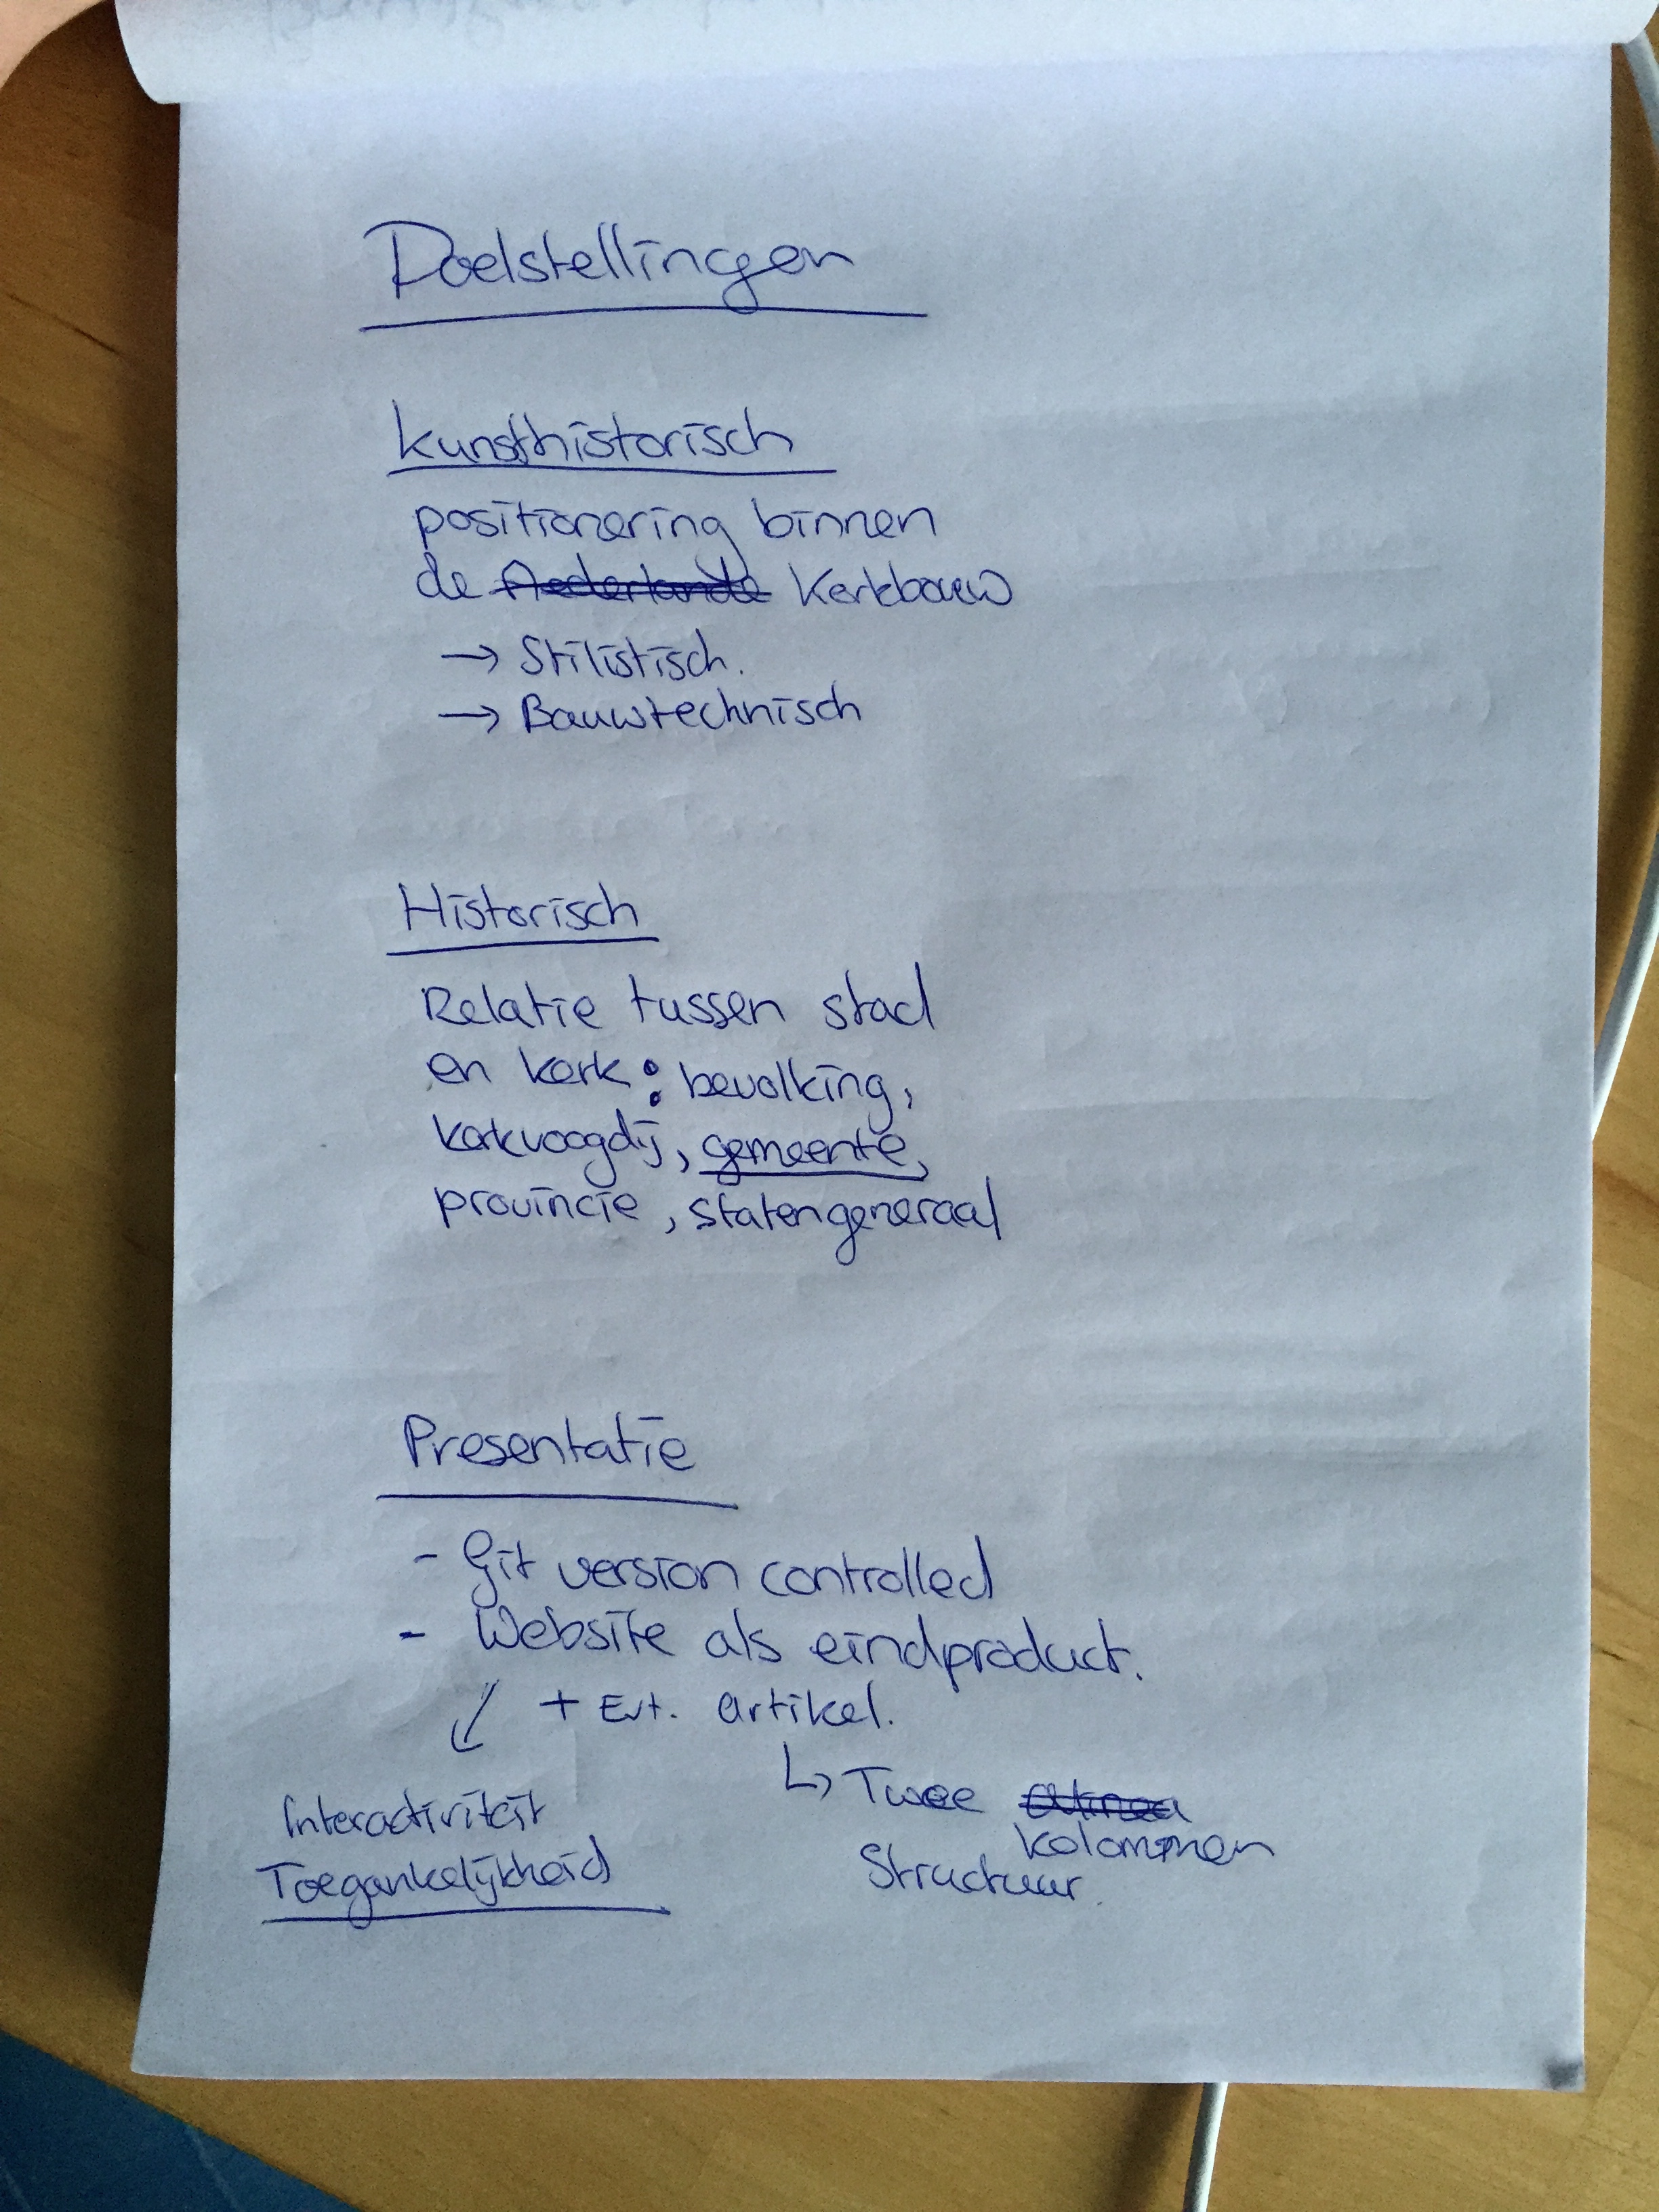 Doelstellingen
kunsthistorisch
positionering binnen
de Nederlande Kerkbouw
→ Stilistisch.
→ Bouwtechnisch
Historisch
Relatie tussen stad
en kerk: bevolking,
kerkvoogdij, gemeente,
provincie, statengeneraal
Presentatie
- Git version controlled
- Website als eindproduct.
+ Evt. artikel.
↳ Twee alinea
kolommen
Structuur.
Interactiviteit
Toegankelijkheid